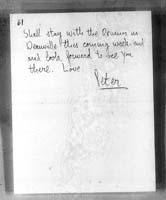 61
Shall stay with the
Deauville this coming week-end
and look forward to see you
there. Love
Peter